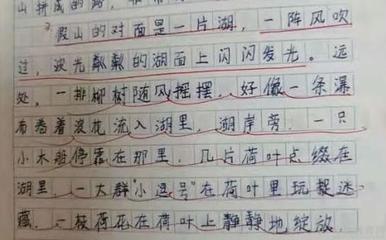 山拼成的路，
假山的对面是一片湖，一阵风吹
过，波光粼粼的湖面上闪闪发光。远
处，一排柳树随风摇摆，好像一条瀑
布卷着浪花流入湖里，湖岸旁，一只
小木船停靠在那里，几片荷叶点缀在
湖里，一大群“小逗号”在荷叶里玩捉迷
藏，一枝荷花在荷叶上静静地绽放。